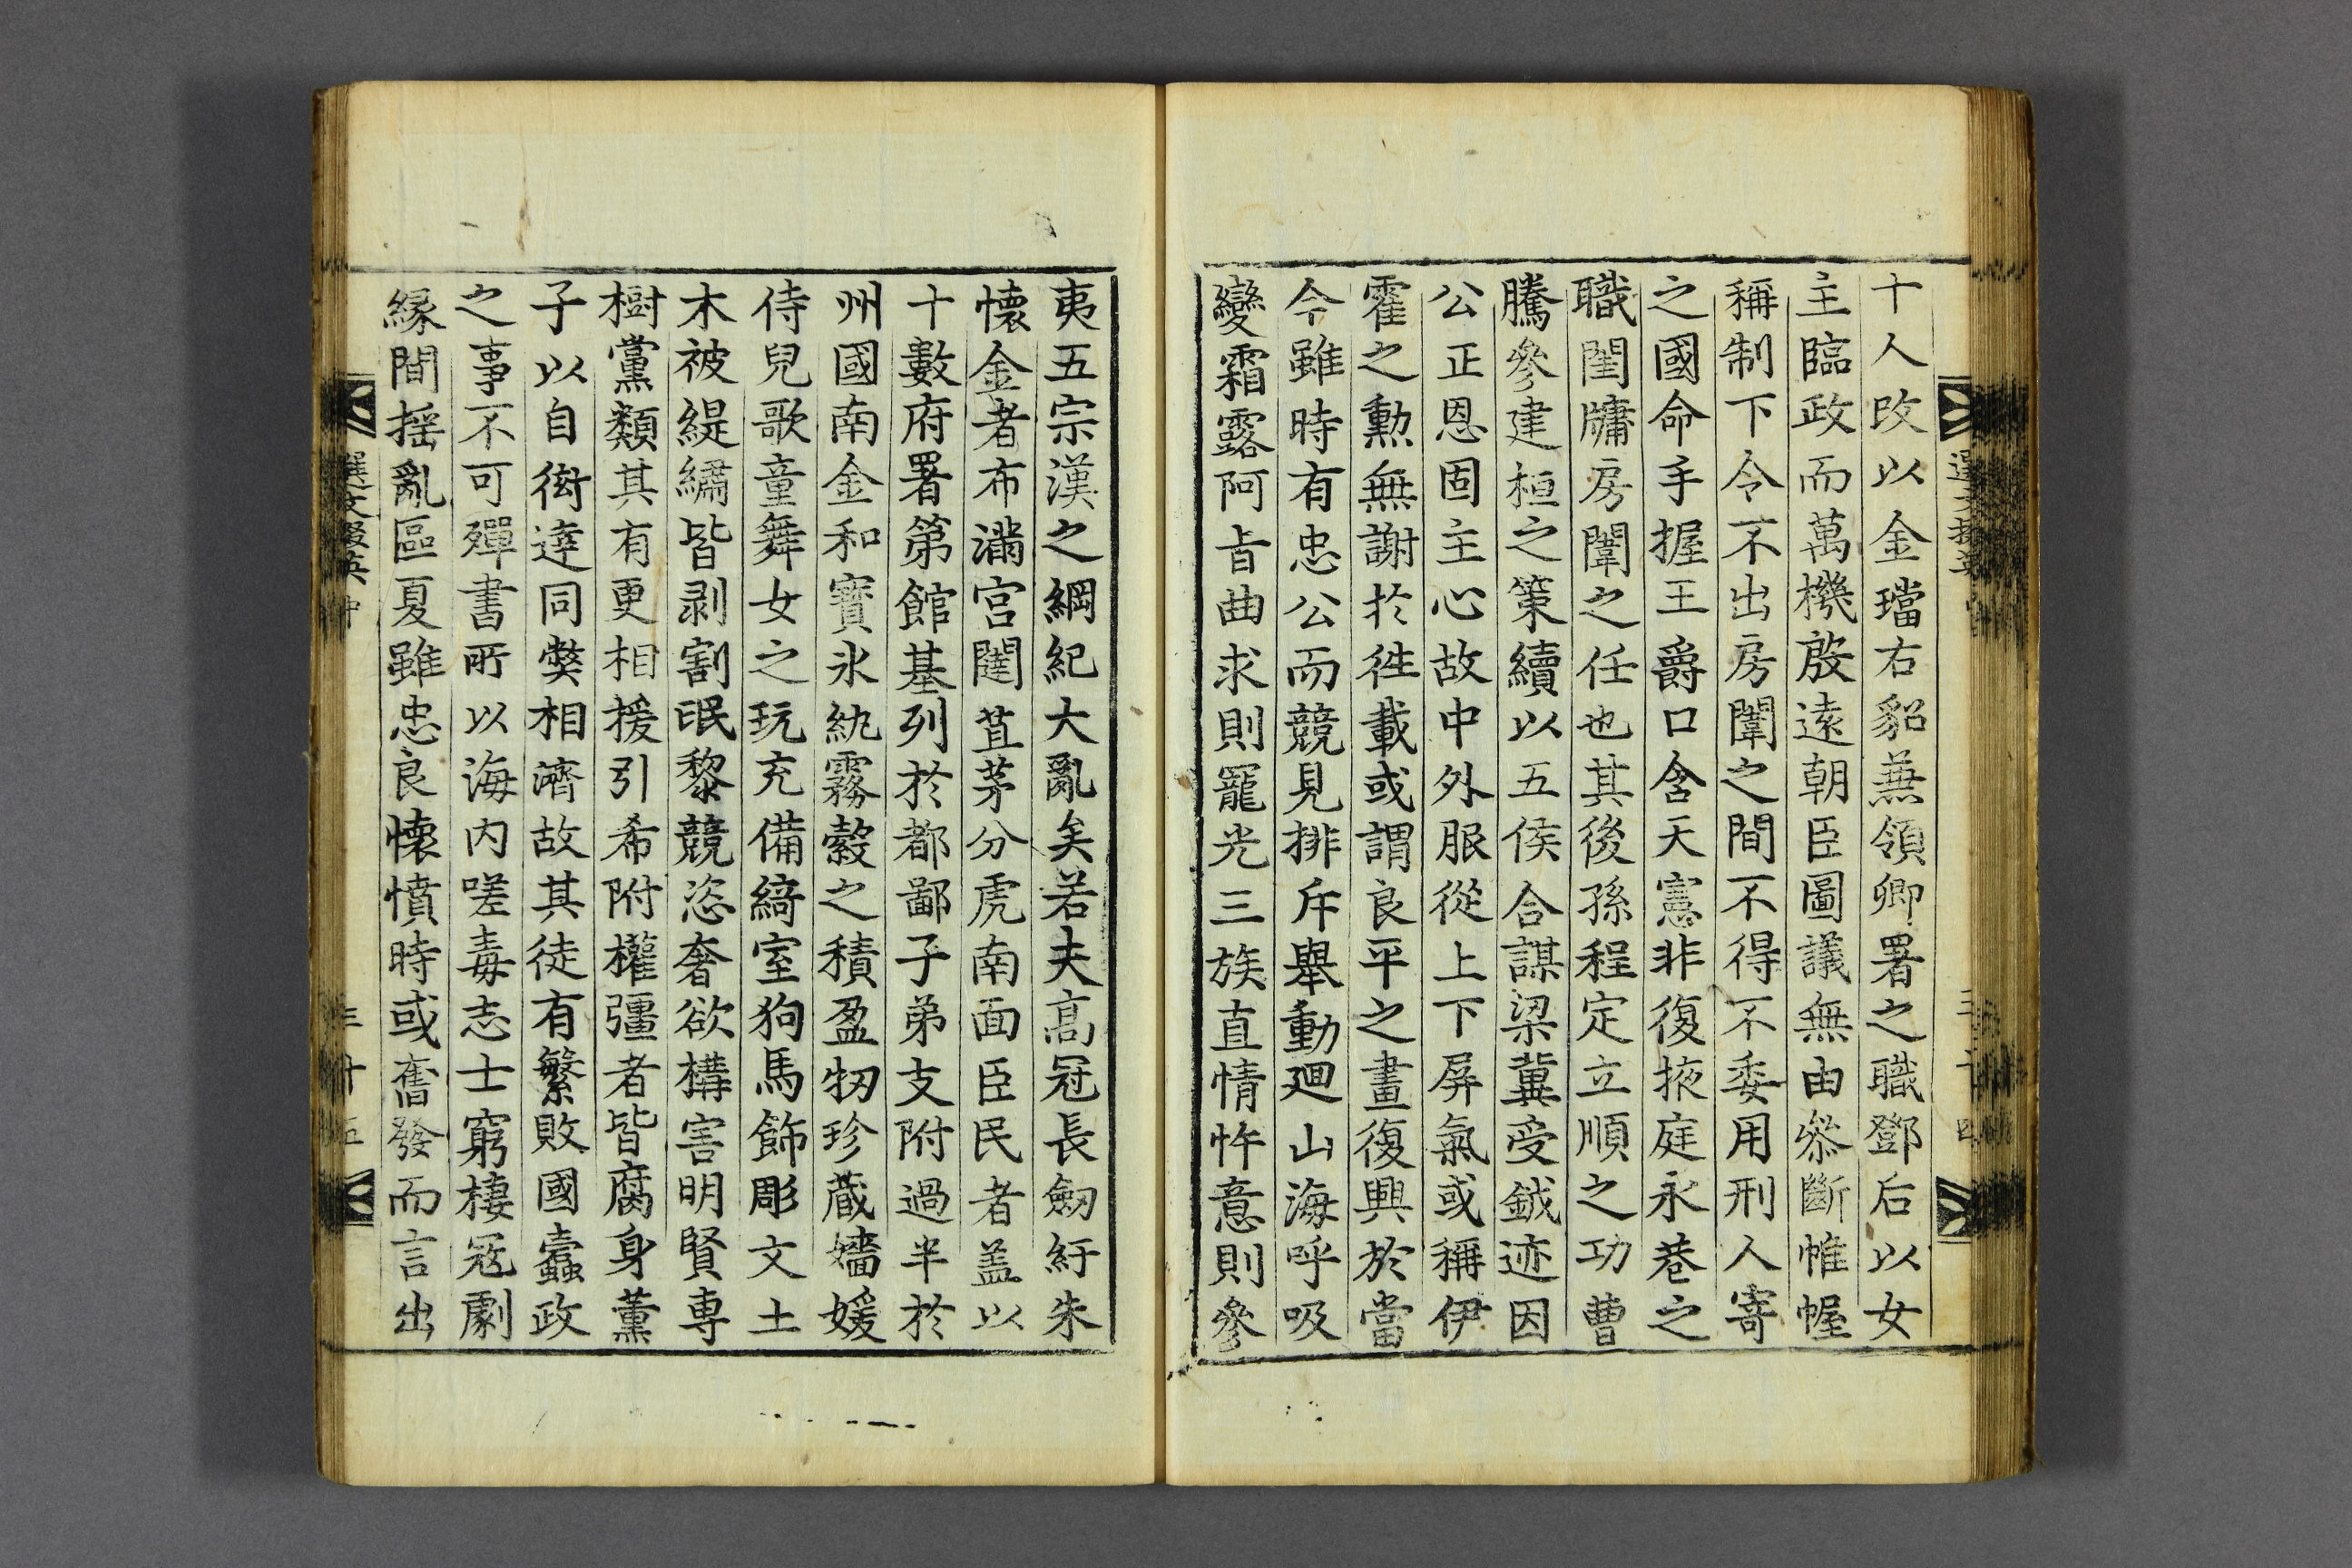 十人改以金璫右貂兼領卿署之職鄧后以女
主臨政而萬機殷遠朝臣圖議無由參斷帷幄
稱制下令不出房闈之間不得不委用刑人寄
之國命手握王爵口含天憲非復掖庭永巷之
職閨牗房闈之任也其後孫程定立順之功曹
騰參建桓之策續以五侯合謀梁冀受鉞迹因
公正恩固主心故中外服從上下屏氣或稱伊
霍之勲無謝於徃載或謂良平之畫復興於當
今雖時有忠公而競見排斥舉動廻山海呼吸
變霜露阿旨曲求則寵光三族直情忤意則參
夷五宗漢之綱紀大亂矣若夫高冠長劒紆朱
懷金者布滿宮闥苴茅分虎南面臣民者盖以
十數府署第館基列於都鄙子弟支附過半於
州國南金和寶氷紈霧縠之積盈牣珍蔵嬙媛
侍兒歌童舞女之玩充備綺室狗馬飾彫文土
木被緹繡皆剥割氓黎競恣奢欲構害明賢專
樹黨類其有更相援引希附權彊者皆腐身薰
子以自衒達同獘相濟故其徒有繁敗國蠹政
之事不可殫書所以海内嗟毒志士窮棲冦劇
縁間揺亂區夏雖忠良懷憤時或奮發而言出
選文掇英 中
三十五